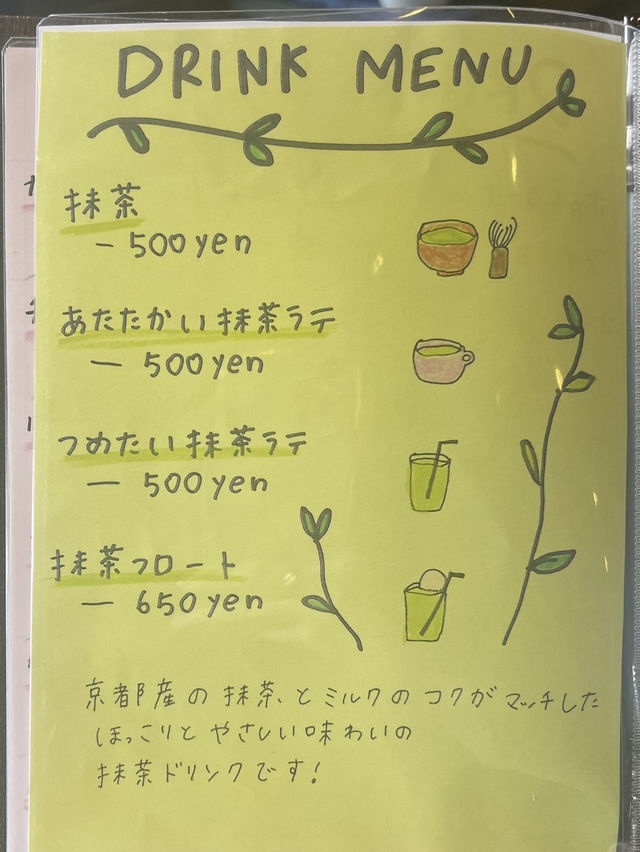 DRINK MENU
抹茶
— 500yen
あたたかい抹茶ラテ
— 500yen
つめたい抹茶ラテ
— 500yen
抹茶フロート
— 650yen
京都産の抹茶とミルクのコクがマッチした
ほっこりとやさしい味わいの
抹茶ドリンクです!